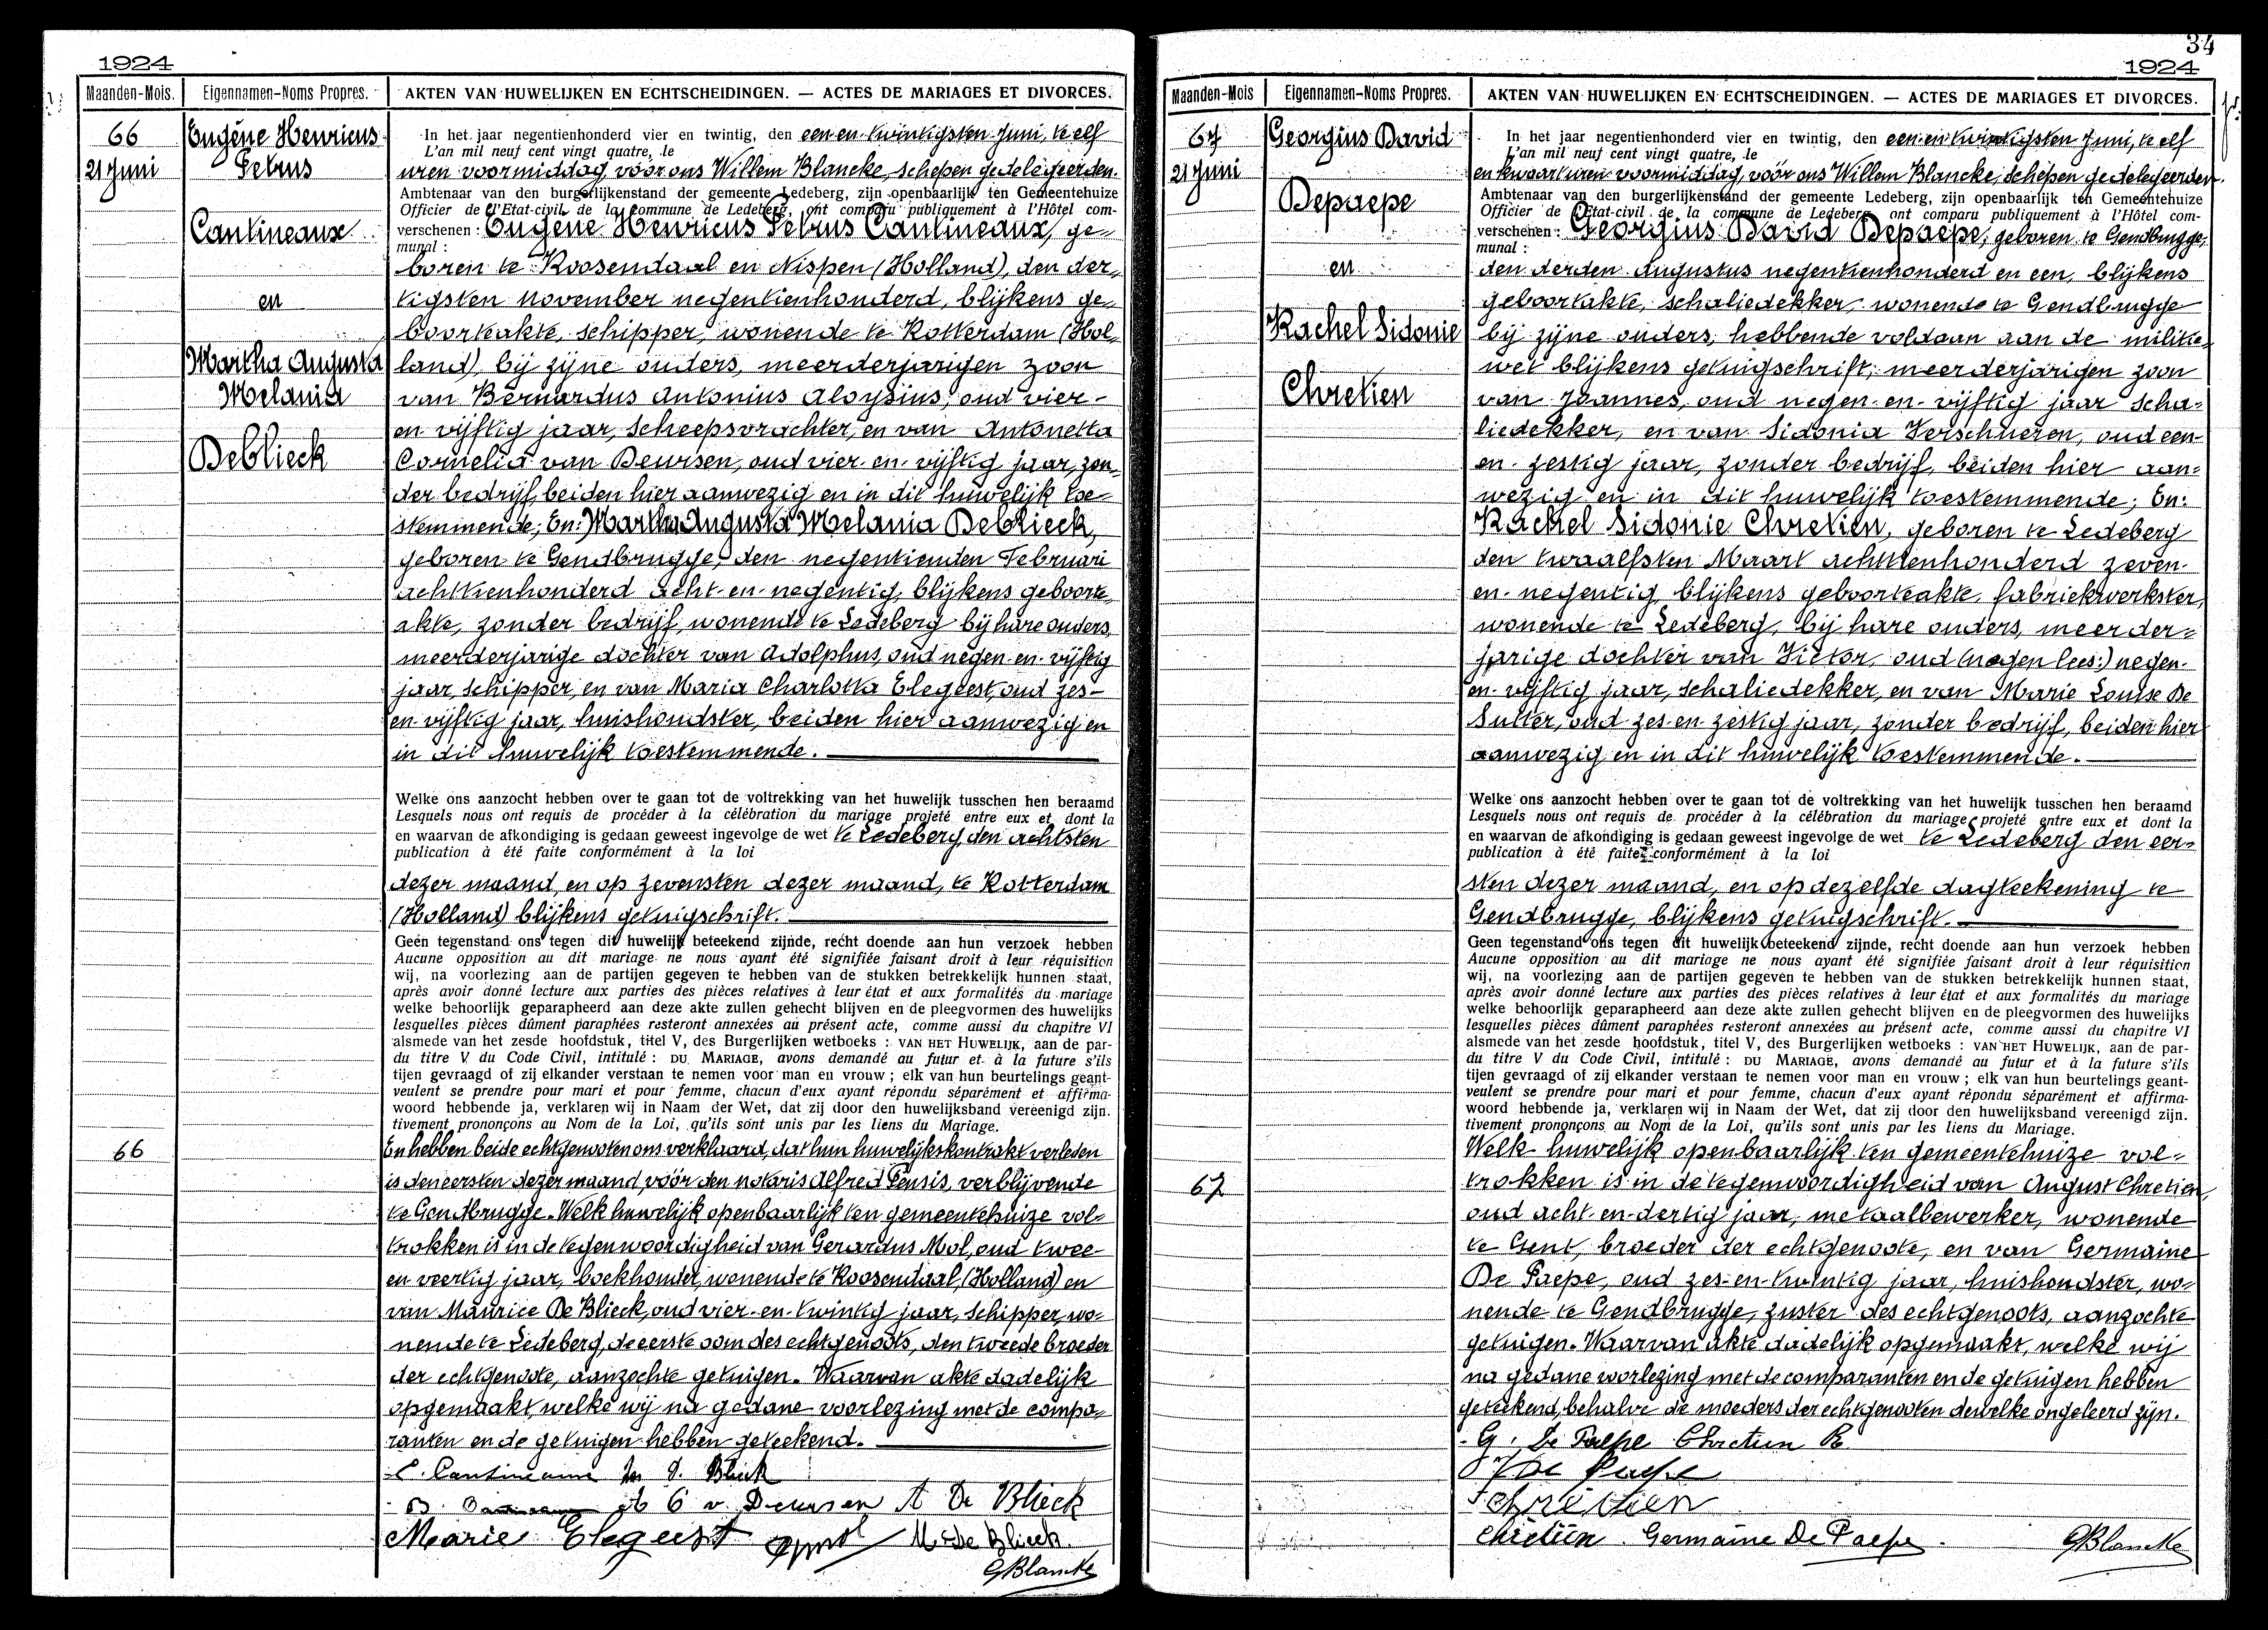 1924
Maanden-Mois. Eigennamen-Noms Propres. AKTEN VAN HUWELIJKEN EN ECHTSCHEIDINGEN. — ACTES DE MARIAGES ET DIVORCES.
66
21 Juni
Eugène Henricus
Petrus
Cantineaux
en
Martha Augusta
Melania
Deblieck
In het jaar negentienhonderd vier en twintig, den een en twintigsten Juni, te elf
L'an mil neuf cent vingt quatre, le
uren voormiddag, vóór ons Willem Blancke, schepen gedelegeerden
Ambtenaar van den burgerlijkenstand der gemeente Ledeberg, zijn openbaarlijk ten Gemeentehuize
Officier de l'Etat-civil de la commune de Ledeberg, ont comparu publiquement à l'Hôtel com-
verschenen : Eugène Henricus Petrus Cantineaux, ge-
munal :
boren te Roosendaal en Nispen (Holland), den der-
tigsten November negentienhonderd, blijkens ge-
boorteakte, schipper, wonende te Rotterdam (Hol-
land), bij zijne ouders, meerderjarigen zoon
van Bernardus Antonius Aloysius, oud vier-
en vijftig jaar, scheepsvrachter, en van Antonetta
Cornelia van Deursen, oud vier-en-vijftig jaar, zon-
der bedrijf, beiden hier aanwezig en in dit huwelijk toe-
stemmende; En: Martha Augusta Melania Deblieck,
geboren te Gendbrugge, den negentienden Februari
achttienhonderd acht-en-negentig, blijkens geboorte-
akte, zonder bedrijf, wonende te Ledeberg bij hare ouders,
meerderjarige dochter van Adolphus, oud negen-en-vijftig
jaar, schipper, en van Maria Charlotta Elegeest, oud zes-
en-vijftig jaar, huishoudster, beiden hier aanwezig en
in dit huwelijk toestemmende.
Welke ons aanzocht hebben over te gaan tot de voltrekking van het huwelijk tusschen hen beraamd
Lesquels nous ont requis de procéder à la célébration du mariage projeté entre eux et dont la
en waarvan de afkondiging is gedaan geweest ingevolge de wet te Ledeberg, den achtsten
publication à été faite conformément à la loi
dezer maand, en op zevensten dezer maand, te Rotterdam
(Holland) blijkens getuigschrift.
Geen tegenstand ons tegen dit huwelijk beteekend zijnde, recht doende aan hun verzoek hebben
Aucune opposition au dit mariage ne nous ayant été signifiée faisant droit à leur réquisition
wij, na voorlezing aan de partijen gegeven te hebben van de stukken betrekkelijk hunnen staat,
après avoir donné lecture aux parties des pièces relatives à leur état et aux formalités du mariage
welke behoorlijk geparapheerd aan deze akte zullen gehecht blijven en de pleegvormen des huwelijks
lesquelles pièces dûment paraphées resteront annexées au présent acte, comme aussi du chapitre VI
alsmede van het zesde hoofdstuk, titel V, des Burgerlijken wetboeks : VAN HET HUWELIJK, aan de par-
du titre V du Code Civil, intitulé : DU MARIAGE, avons demandé au futur et à la future s'ils
tijen gevraagd of zij elkander verstaan te nemen voor man en vrouw ; elk van hun beurtelings geant-
veulent se prendre pour mari et pour femme, chacun d'eux ayant répondu séparément et affirma-
woord hebbende ja, verklaren wij in Naam der Wet, dat zij door den huwelijksband vereenigd zijn.
tivement prononçons au Nom de la Loi, qu'ils sont unis par les liens du Mariage.
66
En hebben beide echtgenooten ons verklaard, dat hun huwelijkskontrakt verleden
is den eersten dezer maand, vóór den notaris Alfred Pensis, verblijvende
te Gendbrugge. Welk huwelijk openbaarlijk ten gemeentehuize vol-
trokken is in de tegenwoordigheid van Gerardus Mol, oud twee-
en veertig jaar, boekhouder, wonende te Roosendaal, (Holland) en
van Maurice De Blieck, oud vier-en-twintig jaar, schipper, wo-
nende te Ledeberg, de eerste oom des echtgenoots, den tweede broeder
der echtgenoote, aanzochte getuigen. Waarvan akte dadelijk
opgemaakt, welke wij na gedane voorlezing met de compa-
ranten en de getuigen hebben geteekend.
E. Cantineaux M. De Blieck
v. Deursen A De Blieck
Marie Elegeest GMol M. De Blieck
GBlancke
34
1924
Maanden-Mois Eigennamen-Noms Propres. AKTEN VAN HUWELIJKEN EN ECHTSCHEIDINGEN. — ACTES DE MARIAGES ET DIVORCES.
67
21 Juni
Georgius David
Depaepe
en
Rachel Sidonie
Chretien
In het jaar negentienhonderd vier en twintig, den een-en-twintigsten Juni, te elf
L'an mil neuf cent vingt quatre, le
en kwaart uren voormiddag, vóór ons Willem Blancke, schepen gedelegeerden
Ambtenaar van den burgerlijkenstand der gemeente Ledeberg, zijn openbaarlijk ten Gemeentehuize
Officier de l'Etat-civil de la commune de Ledeberg ont comparu publiquement à l'Hôtel com-
verschenen : Georgius David Depaepe, geboren te Gendbrugge,
munal :
den derden Augustus negentienhonderd en een, blijkens
geboortakte, schaliedekker, wonende te Gendbrugge
bij zijne ouders, hebbende voldaan aan de militie-
wet blijkens getuigschrift, meerderjarigen zoon
van Joannes, oud negen-en-vijftig jaar scha-
liedekker, en van Sidonia Verschueren, oud een-
en-zestig jaar, zonder bedrijf, beiden hier aan-
wezig en in dit huwelijk toestemmende; En:
Rachel Sidonie Chretien, geboren te Ledeberg
den twaalfsten Maart achttienhonderd zeven-
en-negentig, blijkens geboorteakte, fabriekwerkster,
wonende te Ledeberg, bij hare ouders, meerder-
jarige dochter van Victor, oud (nagen lees:) negen-
en-vijftig jaar, schaliedekker, en van Marie Louise De
Sutter, oud zes-en-zestig jaar, zonder bedrijf, beiden hier
aanwezig en in dit huwelijk toestemmende.
Welke ons aanzocht hebben over te gaan tot de voltrekking van het huwelijk tusschen hen beraamd
Lesquels nous ont requis de procéder à la célébration du mariage projeté entre eux et dont la
en waarvan de afkondiging is gedaan geweest ingevolge de wet te Ledeberg den eer-
publication à été faite conformément à la loi
sten dezer maand, en op dezelfde dagteekening te
Gendbrugge, blijkens getuigschrift.
Geen tegenstand ons tegen dit huwelijk beteekend zijnde, recht doende aan hun verzoek hebben
Aucune opposition au dit mariage ne nous ayant été signifiée faisant droit à leur réquisition
wij, na voorlezing aan de partijen gegeven te hebben van de stukken betrekkelijk hunnen staat,
après avoir donné lecture aux parties des pièces relatives à leur état et aux formalités du mariage
welke behoorlijk geparapheerd aan deze akte zullen gehecht blijven en de pleegvormen des huwelijks
lesquelles pièces dûment paraphées resteront annexées au présent acte, comme aussi du chapitre VI
alsmede van het zesde hoofdstuk, titel V, des Burgerlijken wetboeks : VAN HET HUWELIJK, aan de par-
du titre V du Code Civil, intitulé : DU MARIAGE, avons demandé au futur et à la future s'ils
tijen gevraagd of zij elkander verstaan te nemen voor man en vrouw ; elk van hun beurtelings geant-
veulent se prendre pour mari et pour femme, chacun d'eux ayant répondu séparément et affirma-
woord hebbende ja, verklaren wij in Naam der Wet, dat zij door den huwelijksband vereenigd zijn.
tivement prononçons au Nom de la Loi, qu'ils sont unis par les liens du Mariage.
67
Welk huwelijk openbaarlijk ten gemeentehuize vol-
trokken is in de tegenwoordigheid van August Chretien,
oud acht-en-dertig jaar, metaalbewerker, wonende
te Gent, broeder der echtgenoote, en van Germaine
De Paepe, oud zes-en-twintig jaar, huishoudster, wo-
nende te Gendbrugge, zuster des echtgenoots, aanzochte
getuigen. Waarvan akte dadelijk opgemaakt, welke wij
na gedane voorlezing met de comparanten en de getuigen hebben
geteekend, behalve de moeders der echtgenooten dewelke ongeleerd zijn.
G. De Paepe Chretien R
J De Paepe
Chrétien
Chrétien Germaine De Paepe GBlancke